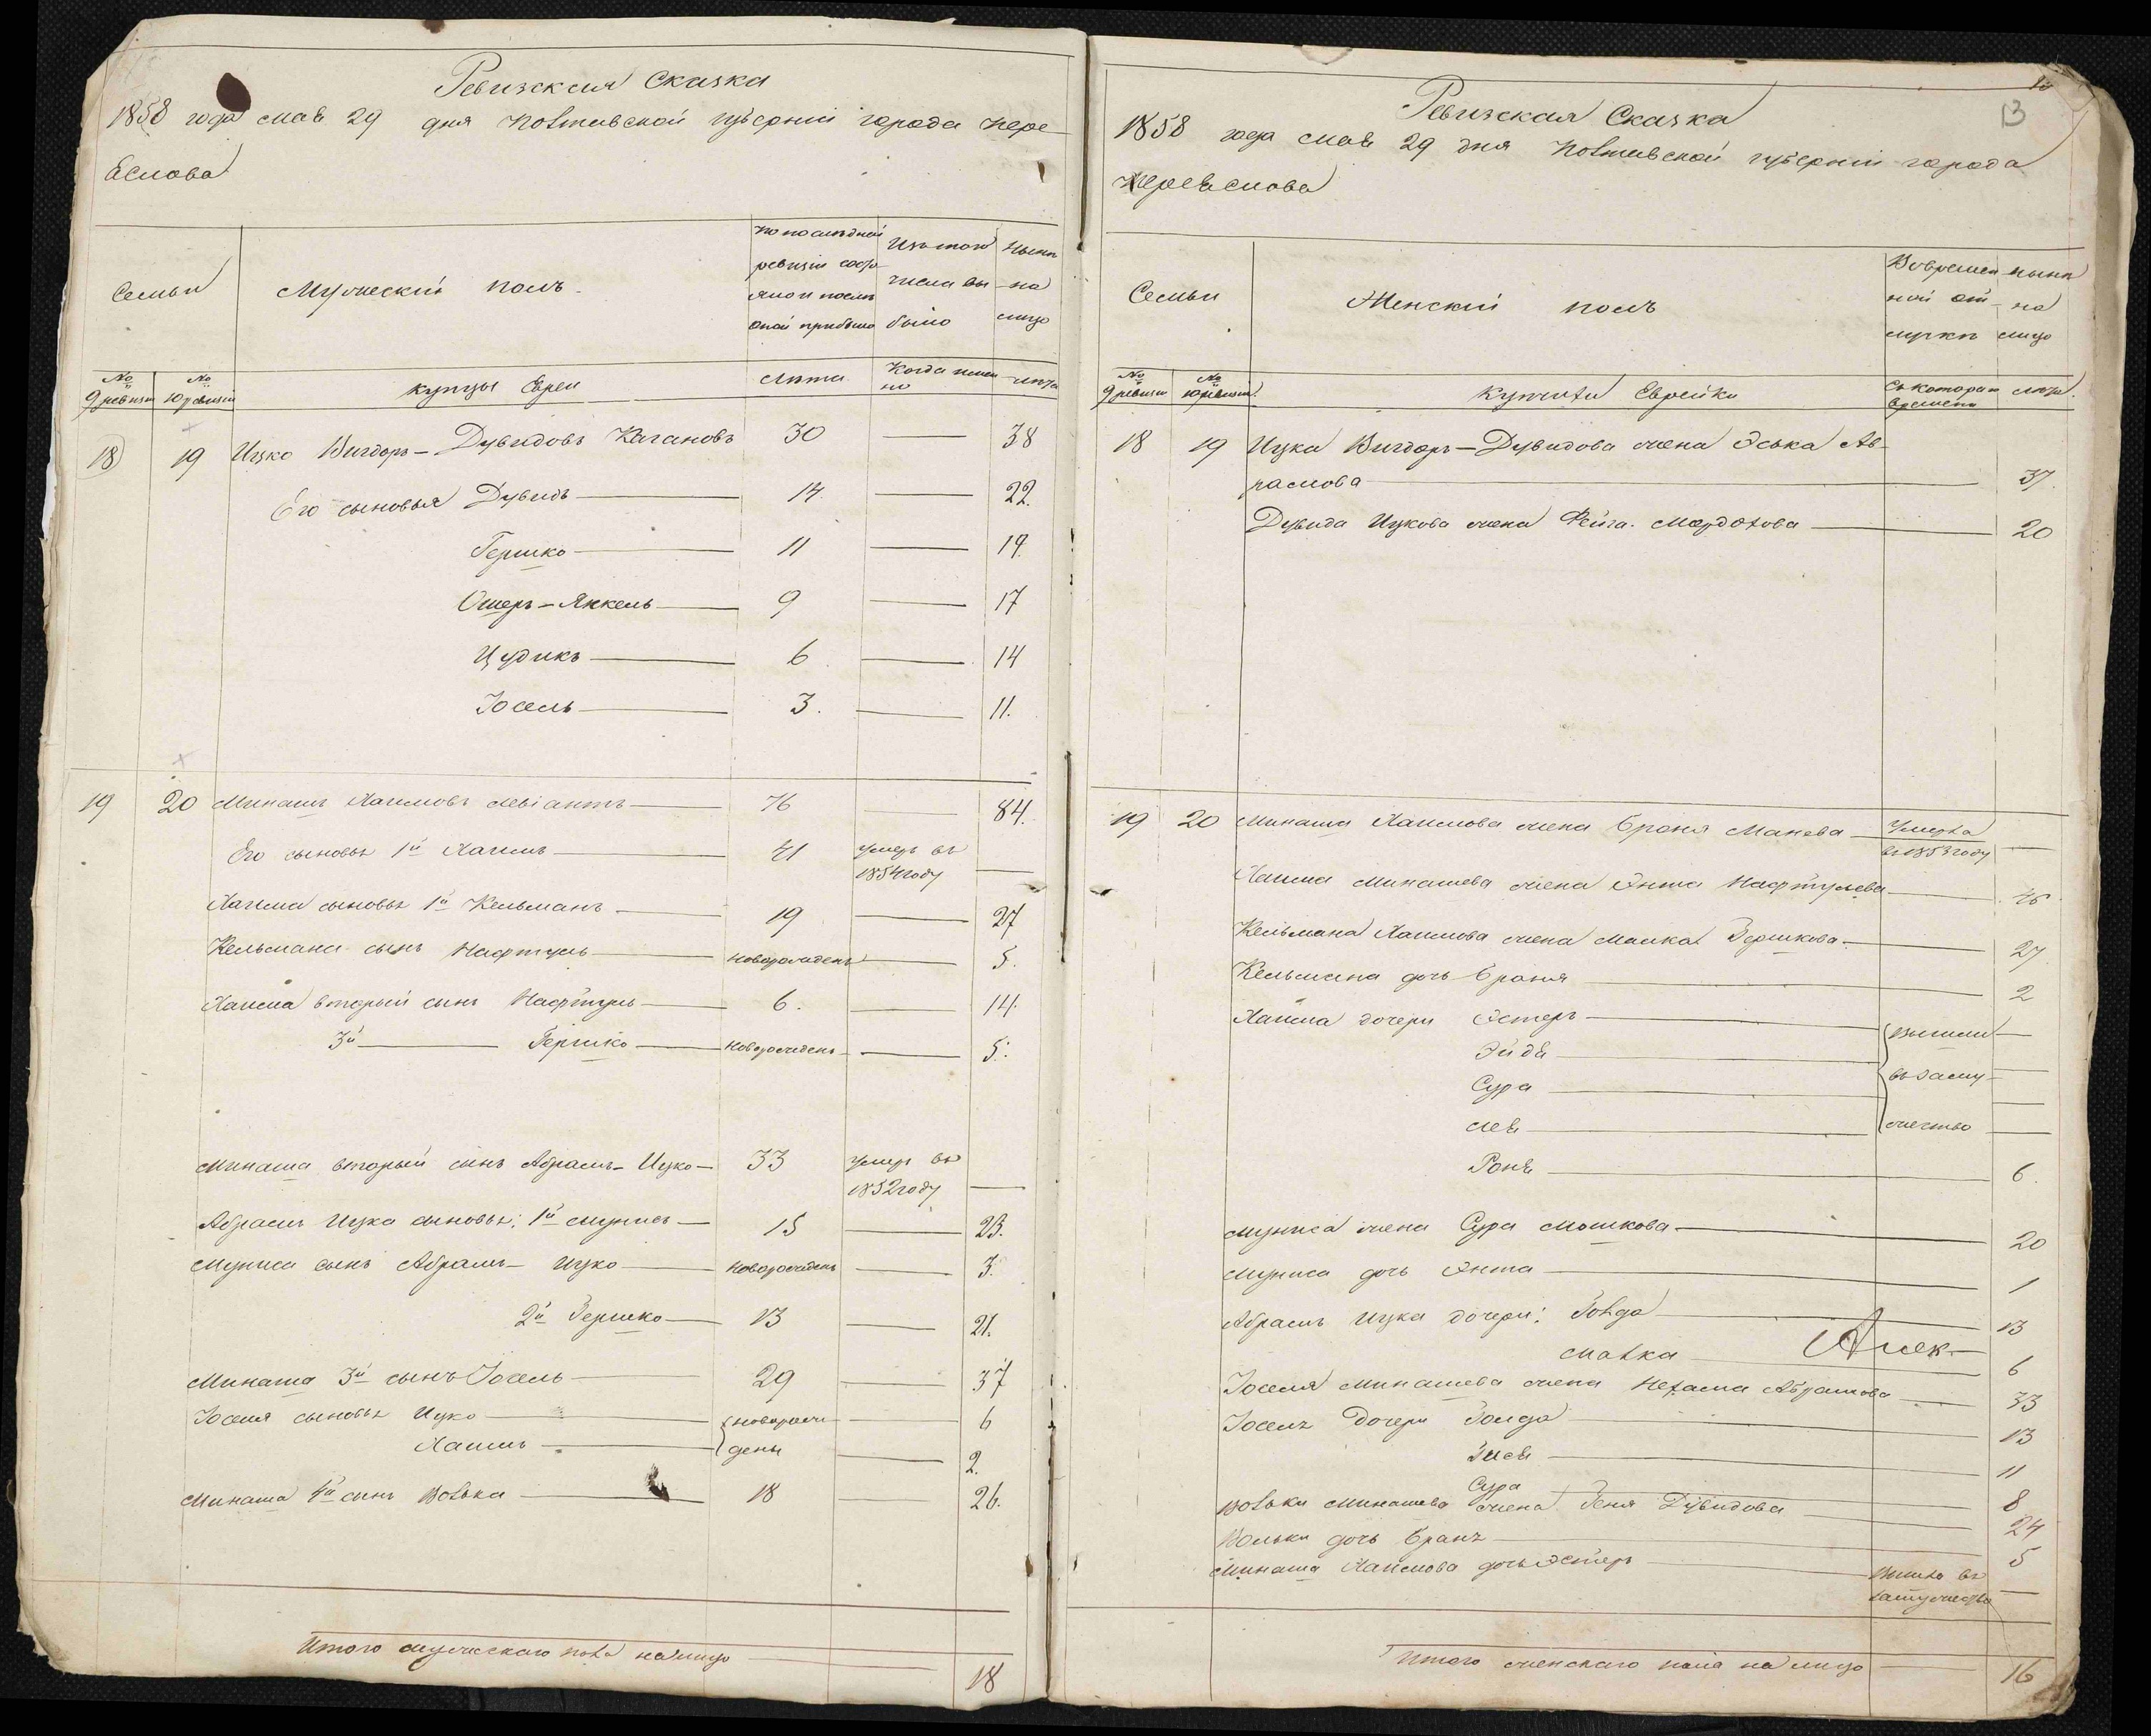 Ревизская Сказка
1858 года мая 29 дня Полтавской губернии города Пере-
яслова
Семьи
Мужеский полъ
По последней ревизіи состояло и после оной прибыло
Изъ того числа выбыло
Ныне на лицо
№ 9 ревизіи
№ 10 ревизіи
купцы Евреи
Лета
Когда именно
Лета
18 19 Ицко Вигдоръ-Дувидовъ Кагановъ 30 — 38
Его сыновья Дувидъ — 14 — 22.
Гершко — 11 — 19.
Ошеръ-Янкель — 9 — 17
Цудикъ — 6. — 14
Іосель — 3. — 11.
19 20 Минашъ Хаимовъ Левіантъ — 76 — 84.
Его сыновья 1й Хаимъ — 41 умеръ въ
1854 году —
Хаима сыновья 1й Кельманъ — 19 — 27
Кельмана сынъ Нафтуль — новорожденъ — 5.
Хаима вторый сынъ Нафтуль — 6. — 14.
3й — Гершко — новорожденъ — 5.
Минаша вторый сынъ Абрамъ-Ицко — 33 умеръ въ
1852 году —
Абрамъ Ицка сыновья: 1й Мунисъ — 15 — 23.
Муниса сынъ Абрамъ-Ицко — новорожденъ — 3.
2й Гершко — 13 — 21.
Минаша 3й сынъ Іосель — 29 — 37
Іоселя сыновья Ицко — новорожи — 6
Хаимъ — дены — 2.
Минаша 4й сынъ Волька — 18 — 26.
Итого мужескаго пола на лицо — 18
13
Ревизская Сказка
1858 года мая 29 дня Полтавской губернии города
Переяслова
Семьи
Женский полъ
Во временной отлучке
ныне на лицо
№ 9 ревизіи
№ 10 ревизіи
купчихи Еврейки
Съ котораго времени
лета.
18 19 Ицка Вигдоръ-Дувидова жена Эська Аб-
рамова — 37.
Дувида Ицкова жена Фейга Мордохова — 20
19 20 Минаша Хаимова жена Браня Манева — Умерла
въ 1853 году —
Хаима Минашева жена Энта Нафтулева — 46.
Кельмана Хаимова жена Малка Гершкова — 27
Кельмана дочь Браня — 2
Хаима дочери Эстеръ — вышли —
Эйдя — въ заму- —
Сура — —
Лея — жество —
Роня — 6.
Муниса жена Сура Мошкова — 20
Муниса дочь Энта — 1
Абрамъ Ицка дочери: Голда — 13
Малка — 6
Алек-
Іоселя Минашева жена Нехама Абрамова — 33
Іоселя дочери Голда — 13
Зися — 11
Сура — 8
Вольки Минашева жена Геня Дувидова — 24
Вольки дочь Браня — 5
Минаша Хаимова дочь Эстеръ — Вышла въ
замужество —
Итого женскаго пола на лицо — 16